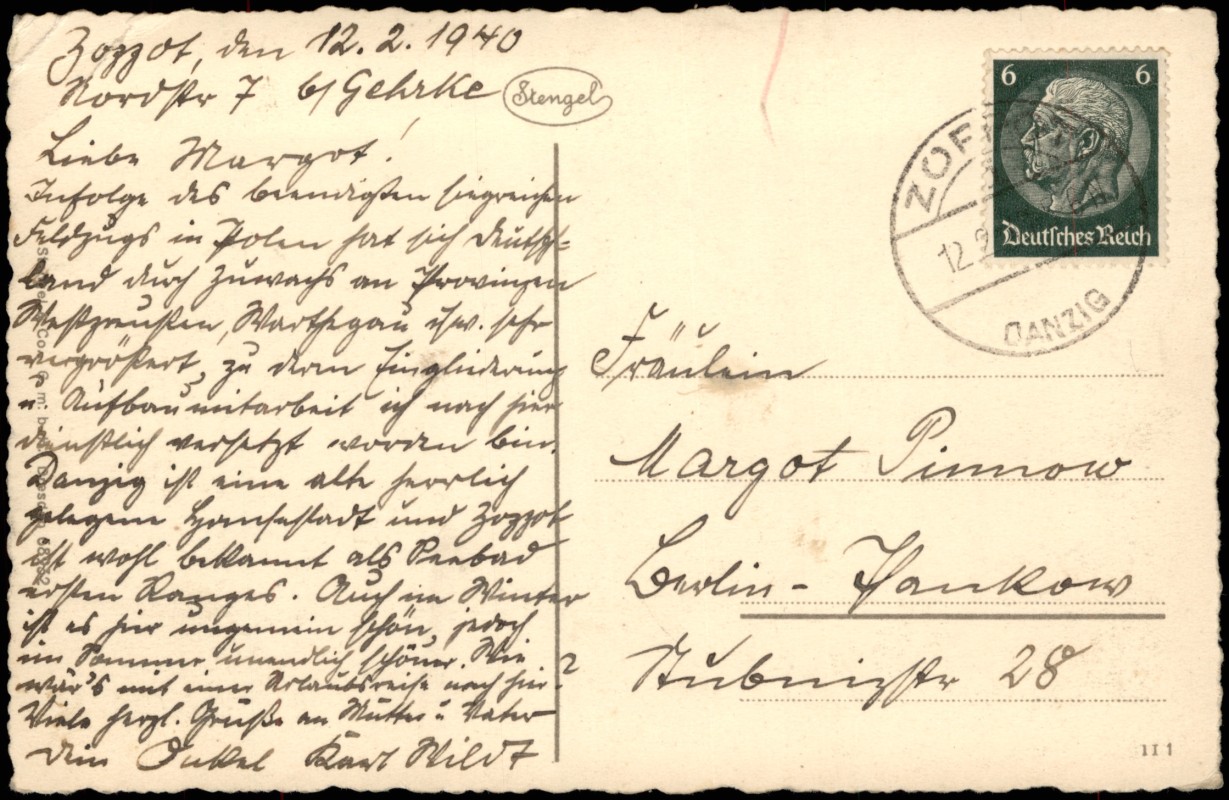 Zoppot, den 12.2.1940
Nordstr 7 b/ Gehrke
Stengel
Liebe Margot!
Infolge des beendigten siegreichen
Feldzugs in Polen hat sich Deutsch-
land durch Zuwachs an Provinzen
Westpreußen, Warthegau usw. sehr
vergrößert, zu deren Eingliederung
u Aufbau mitarbeit ich nach hier
dienstlich versetzt worden bin.
Danzig ist eine alte herrlich
gelegene Hansestadt und Zoppot
ist wohl bekannt als Seebad
ersten Ranges. Auch im Winter
ist es hier ungemein schön, jedoch
im Sommer unendlich schöner. Wie
wär's mit einer Urlaubsreise nach hier?
Viele herzl. Grüße an Mutter u Vater
Dein Onkel Karl Wildt
6 6
Deutsches Reich
12.2
DANZIG
Fräulein
Margot Pinnow
Berlin-Pankow
Stubnizstr 28
II 1